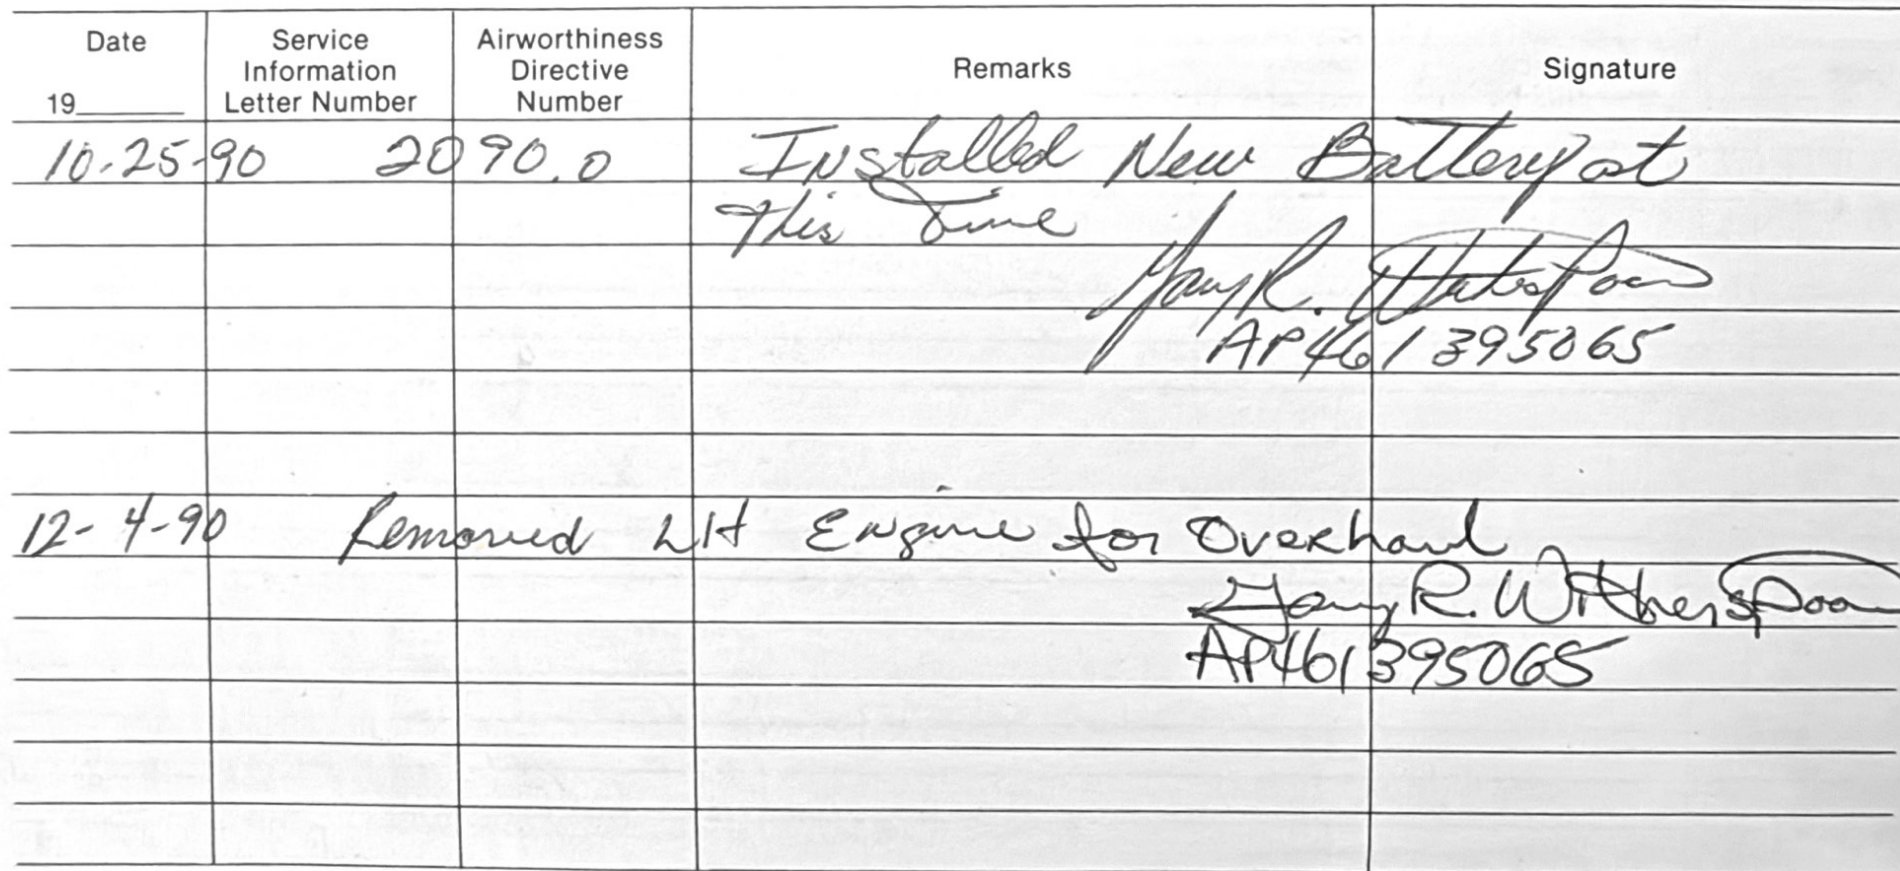 Date
Service
Information
Letter Number
Airworthiness
Directive
Number
Remarks
Signature
19
10-25-90 2090.0 Installed New Battery at
this Time
Gary R. Witherspoon
AP461395065
12-4-90 Removed LH Engine for Overhaul
Gary R. Witherspoon
AP461395065